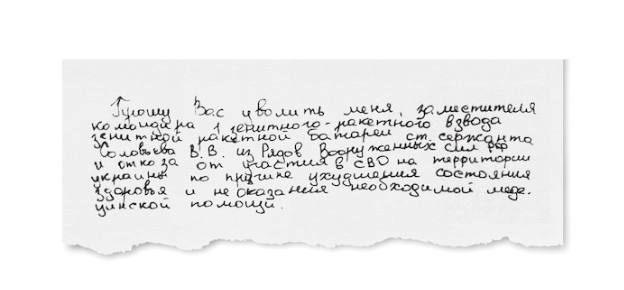 Прошу Вас уволить меня, заместителя
командира 1 зенитного-ракетного взвода
зенитной ракетной батареи ст. сержанта
Соловьёва В.В. из Рядов Вооруженных сил РФ
и отказа от участия в СВО на территории
украины по причине ухудшения состояния
здоровья и не оказания необходимой меди-
цинской помощи.